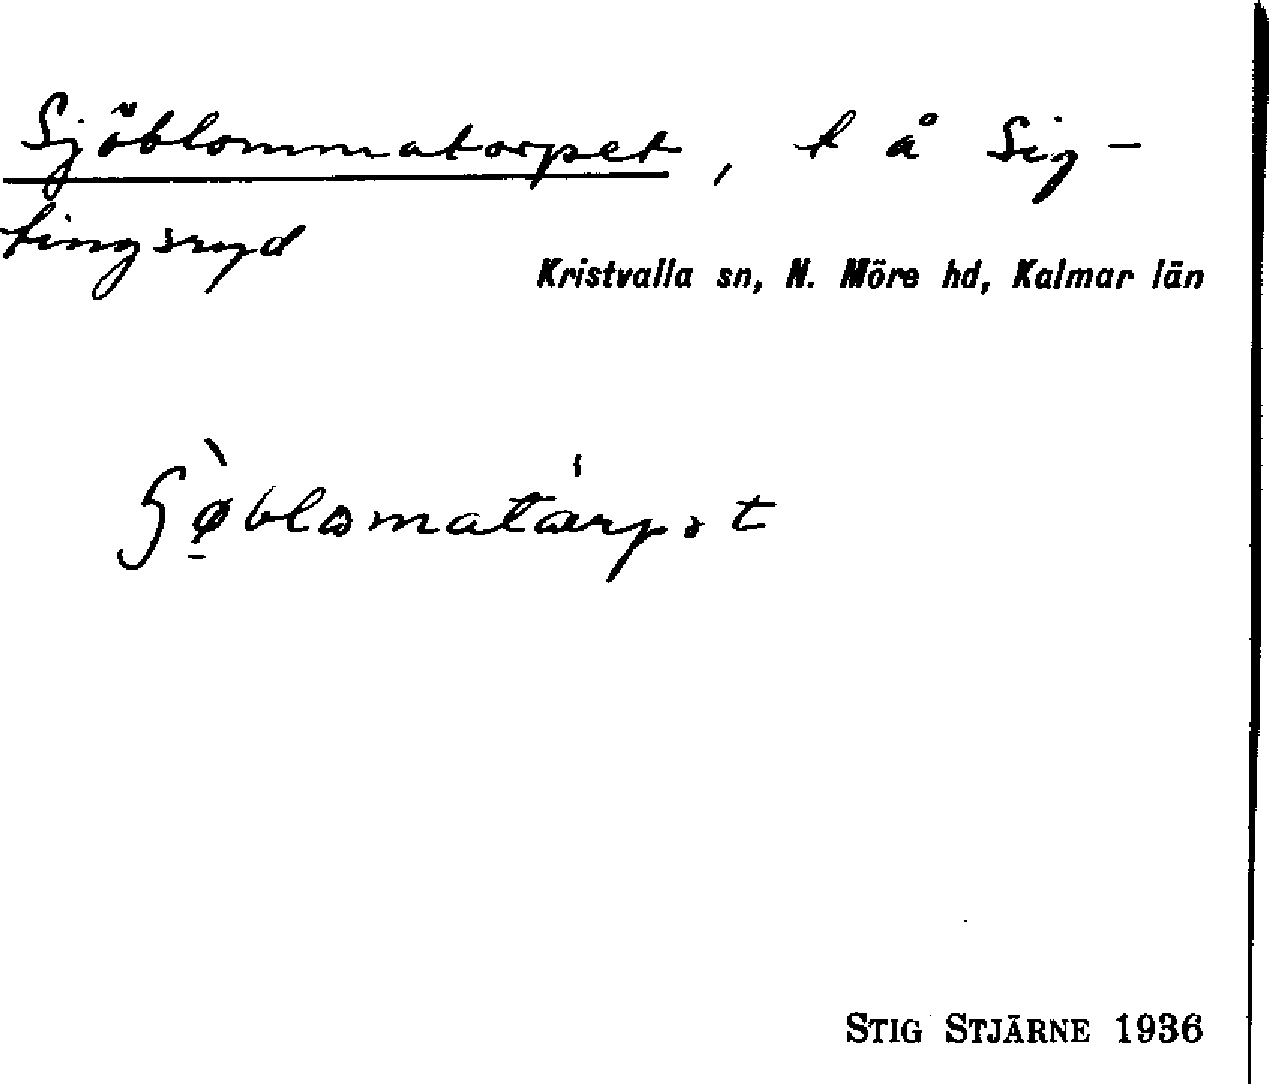 Sjöblommatorpet, t å Sig-
tingsryd
Kristvalla sn, N. Möre hd, Kalmar län
STIG STJÄRNE 1936